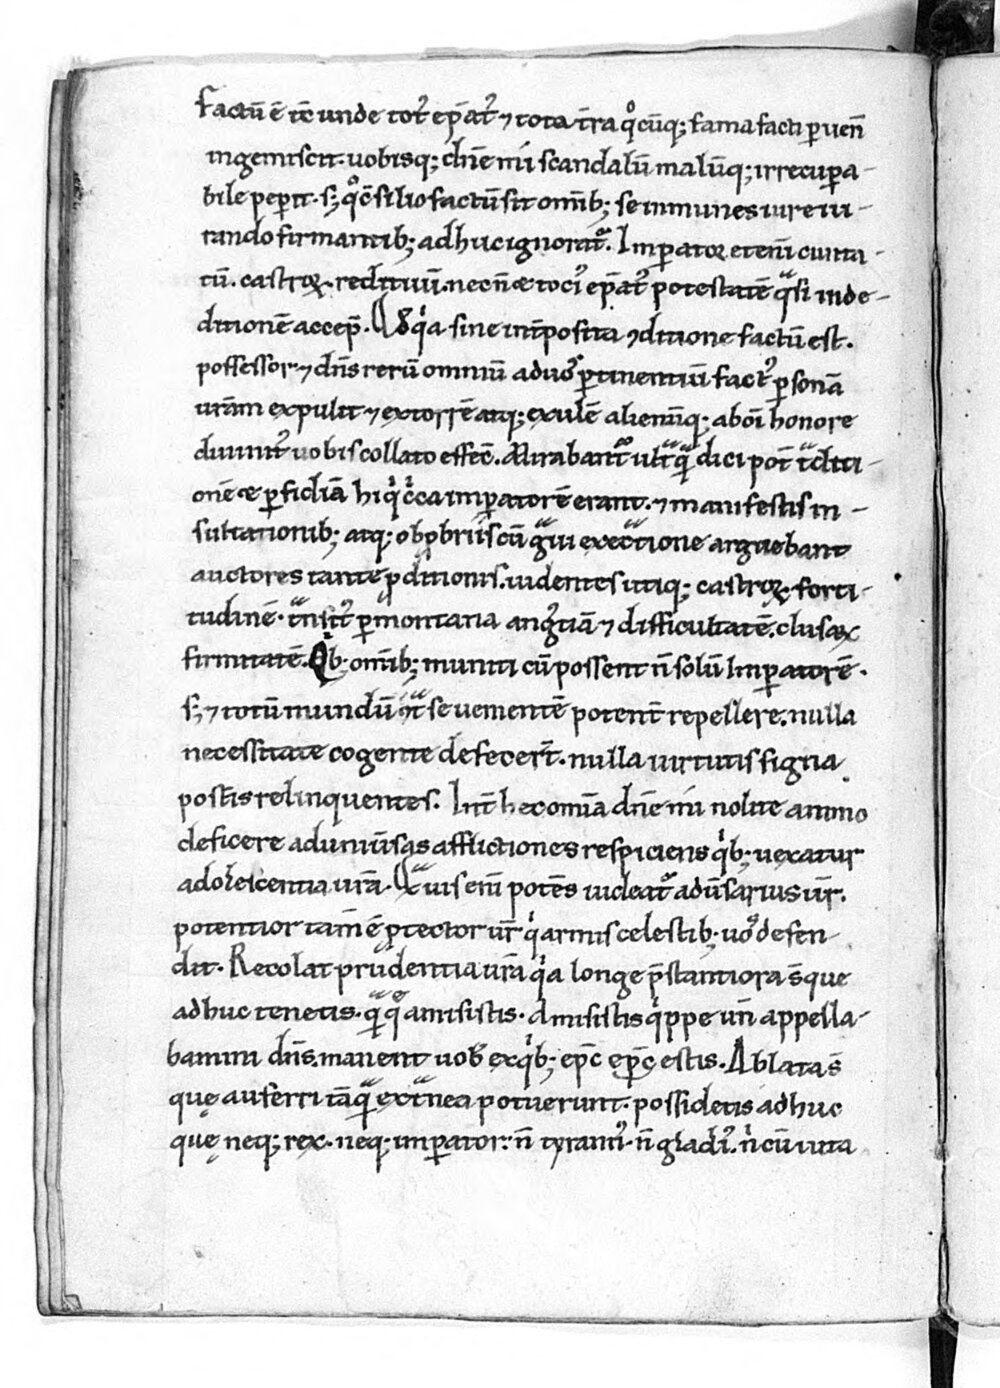 Factū ē īc unde tot᾽ ep̄at᾽ ⁊ tota t̄ra qͦcūq; fama facti puen̄
ingemiscit. uobisq; dn̄e mi scandalū malūq; irrecupa-
bile pepit. s; qͦ c̄silio factū sit omīb; se inmunes iureiu-
rando firmantib; adhuc ignorat᾽. Imperator eteni ciuita-
tū. castroꝝ. redituū. necn̄ ⁊ toci᾽ ep̄at᾽ potestatē qͣsi in de-
ditionē accep̄. Qd qͥa sine int̄posita ꝯditione factū est.
possessor ⁊ dn̄s rerū omniū ad uos ptinentiū fact᾽ psonā
urām expulit ⁊ extorrē atq; exulē alienūq; ab oī honore
diuinit᾽ uobis collato effec̄. Mirabant᾽ ultͣ qͣ dici pot̄ t̄diti-
onē ⁊ pfidiā hi qͥ c̄ca imperatorē erant. ⁊ manifestis in-
sultationib; atq; obpbriis cū gͣui execͣtione arguebant
auctores tante pditionis. uidentes utiq; castroꝝ forti-
tudinē. tͣnsit᾽ p montana angͦtiā ⁊ difficultatē. clusaꝝ
firmitatē. Qͥb; omīb; muniti cū possent n̄ solū Imperatorē.
s; ⁊ totū mundū ꝯtͣ se uementē potent̄ repellere. nulla
necessitate cogente defecer̄t. nulla uirtutis signa
posteris relinquentes. Int̄ hec omīa dn̄e mi nolite animo
deficere ad uniuīsas afflictiones respiciens qͥb; uexatur
adolescentia urā. Qͣuis eni potēs uideat᾽ aduīsarius ur̄.
potentior tam̄ ē ptector ur̄ qͥ armis celestib; uos defen-
dit. Recolat prudentia urā qͥa longe p̄stantiora s̄ que
adhuc tenetis. qͣ qͤ amisistis. Amisistis qͥppe un̄ appella-
bamini dn̄s. manent uob᾽ ex qͥb; ep̄c ep̄c estis. Ablata s̄
quę auferri tāqͣ extͣnea potuerunt. possidetis adhuc
quę neq; rex. neq; imperator. n̄ tyrann᾽. n̄ gladi᾽. n̄ cū uita